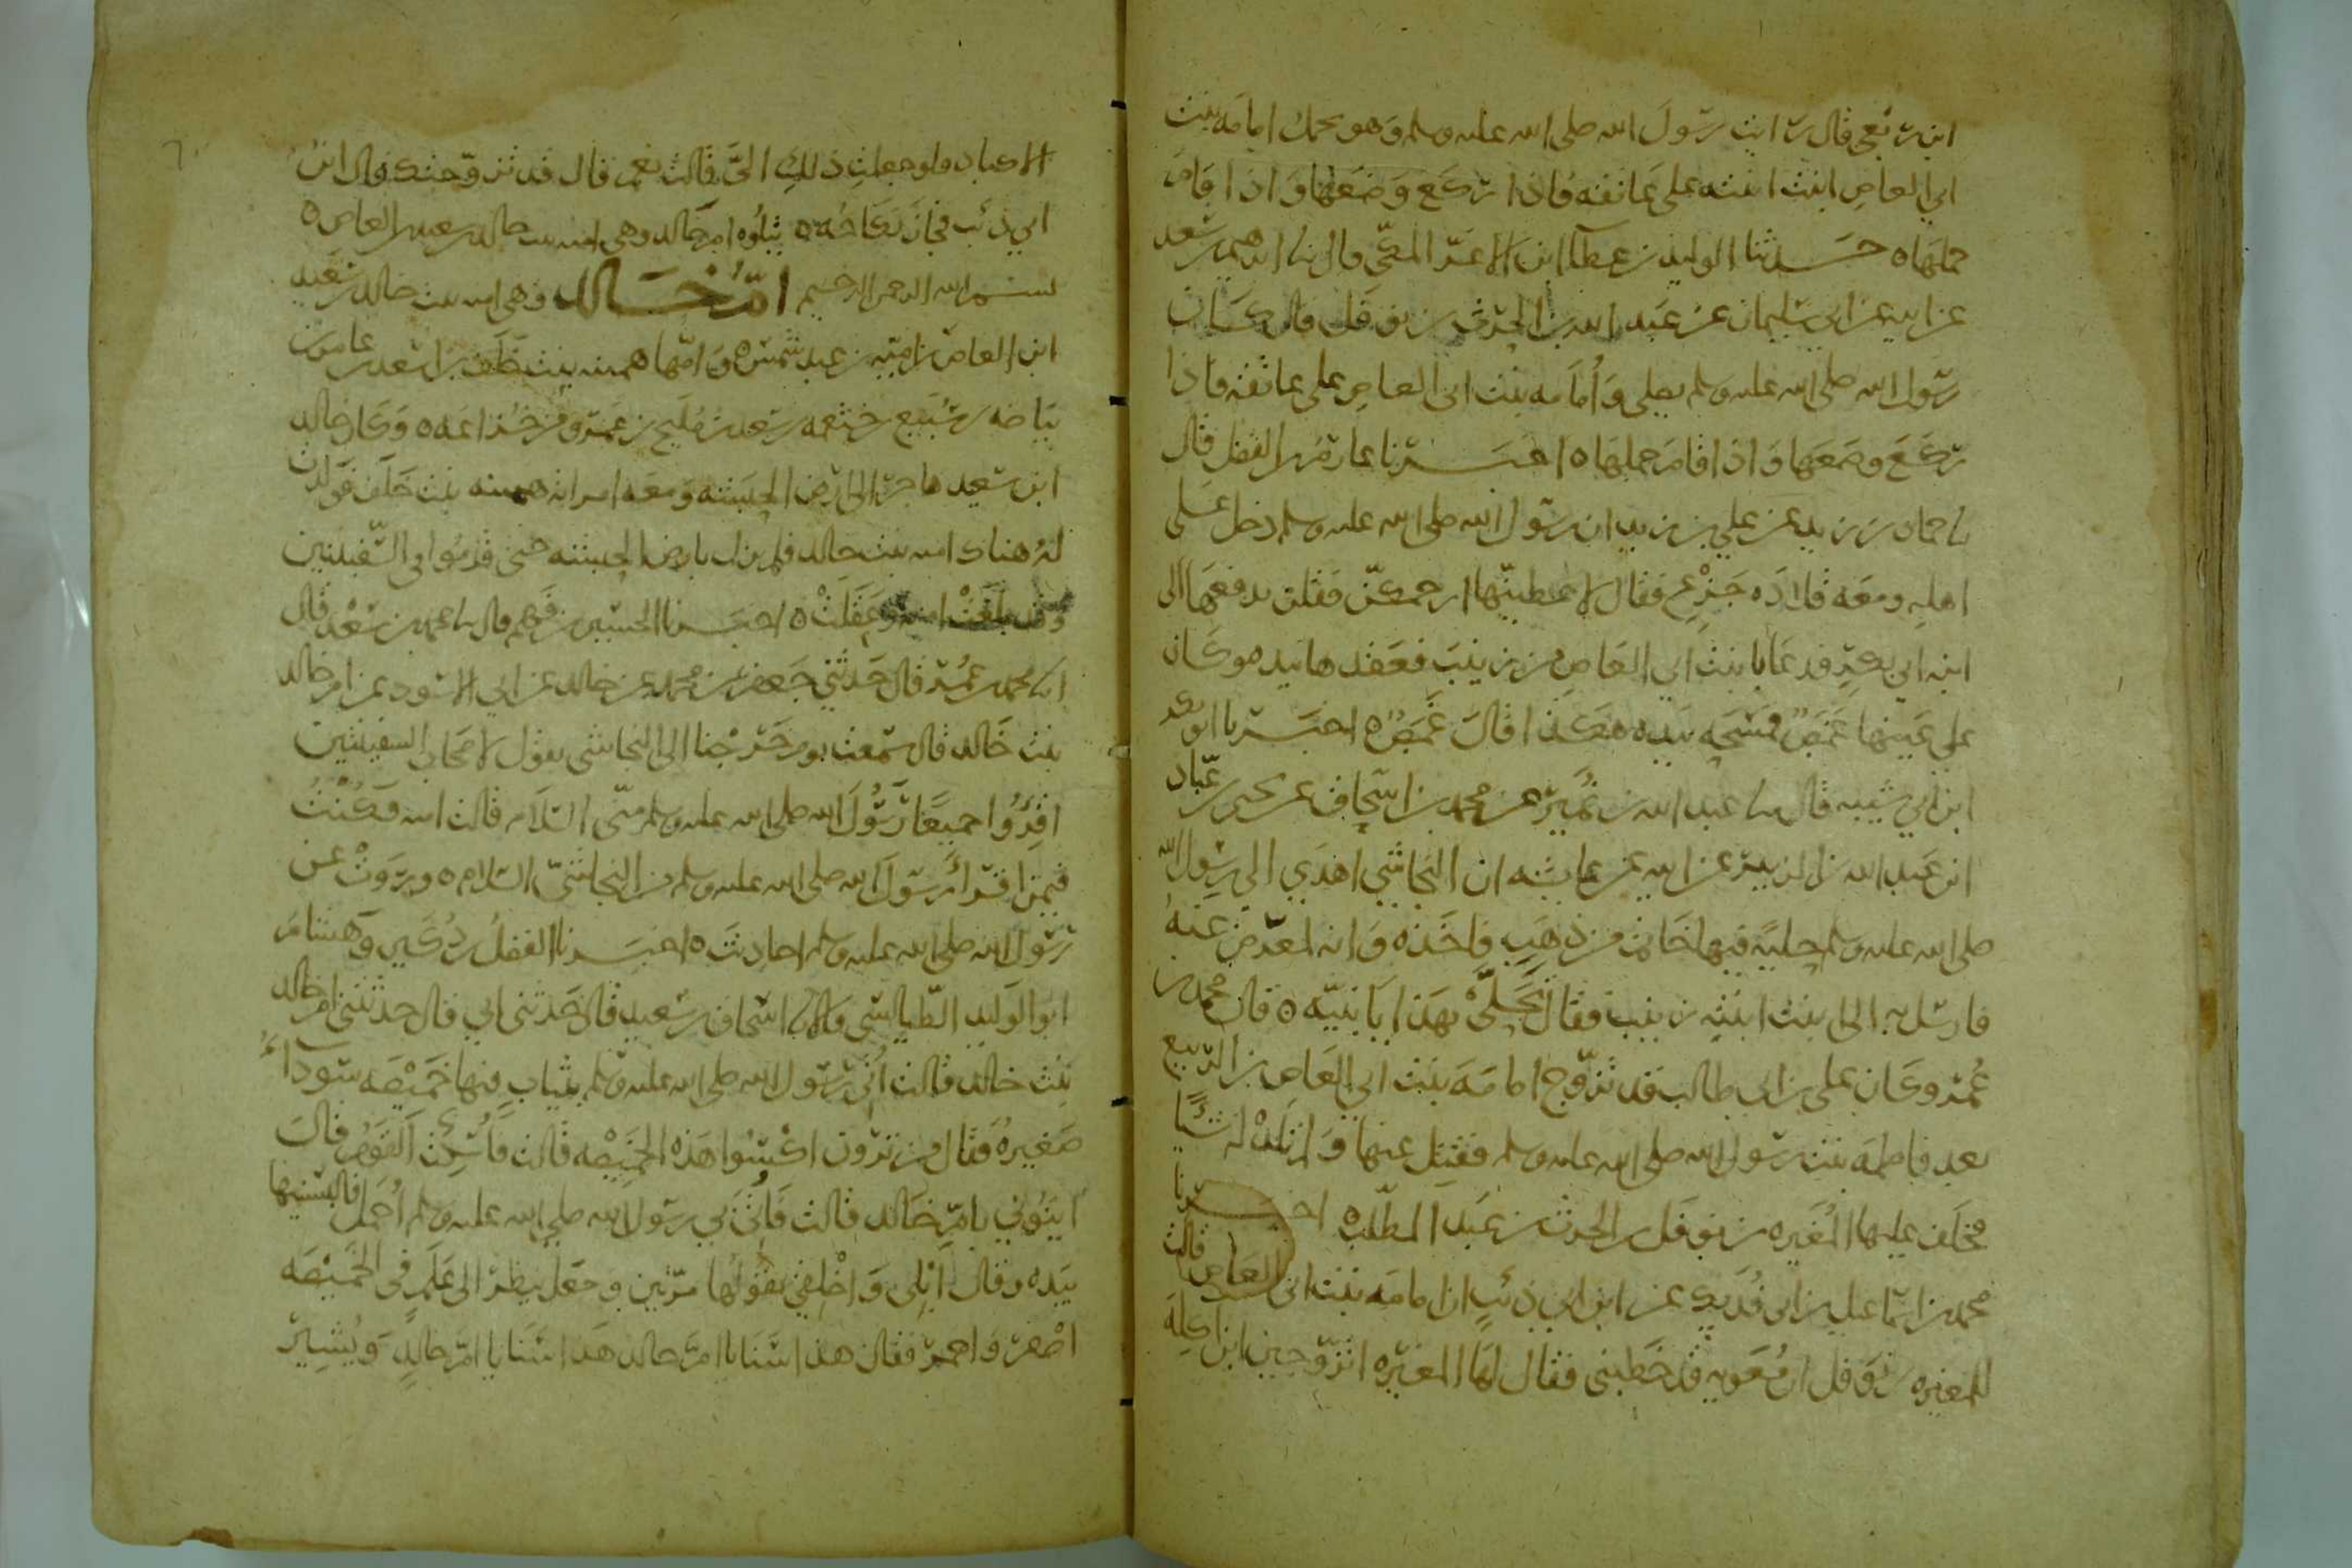 ابن ربعي قال رايت رسول الله صلى الله عليه وسلم وهو يحمل امامه بنت
ابي العاص ابنت ابنته على عاتقه فاذا ركع وضعها واذا قام
حملها ه حدثنا الوليد بن عطا ابن الاغر المكي قال نا ابرهيم بن سعد
عن ابيه عن ابي سليمان عن عبد الله بن الحرث بن نوفل قال كان
رسول الله صلى الله عليه وسلم يصلي وأمامه بنت ابي العاص على عاتقه فاذا
ركع وضعها واذا قام حملها ه اخبرنا عارم بن الفضل قال
نا حماد بن زيد عن علي بن زيد ان رسول الله صلى الله عليه وسلم دخل على
اهله ومعه قلاده جزع فقال لاعطينها ارحمكن فقلن يدفعها الى
ابنه ابي بكر فدعا بابنت ابي العاص من زينب فعقدها بيده وكان
على عينها غمص فمسحه بيده هكذا قال غمص ه اخبرنا ابو بكر
ابن ابي شيبه قال نا عبد الله بن نمير عن محمد بن اسحاق عن يحيى بن عباد
ابن عبد الله بن الزبير عن ابيه عن عايشه ان النجاشي اهدي الى رسول الله
صلى الله عليه وسلم حلية فيها خاتم من ذهب فاخذه وانه لمعرض عنه
فارسل به الى ابنت ابنته زينب فقال تحلي بهذا يا بنيه ه قال محمد بن
عمر وكان علي بن ابي طالب قد تزوج امامه بنت ابي العاص بن الربيع
بعد فاطمه بنت رسول الله صلى الله عليه وسلم فقتل عنها ولم تلد له شيا
فخلف عليها المغيره بن نوفل بن الحرث بن عبد المطلب ه اخبرنا
محمد بن اسماعيل بن ابي فديك عن ابن ابي ذئب ان امامه بنت ابي العاص قالت
للمغيره بن نوفل ان معويه قد خطبني فقال لها المغيره اتزوجين ابن اكله
الاكباد فلو جعلت ذلك الي قالت نعم قال قد تزوجتك قال ابن
ابي ذئب فجاز نكاحه ه يتلوه ام خالد وهي امه بنت خالد بن سعيد بن العاص ه
بسم الله الرحمن الرحيم ام خالد وهي امه بنت خالد بن سعيد
ابن العاص بن اميه بن عبد شمس ه وامها همينه بنت خلف بن اسعد بن عامر بن
بياضه بن سبيع بن خثعمه بن سعد بن مليح بن عمرو من خزاعه ه وكان خالد
ابن سعيد هاجر الى ارض الحبشه ومعه امراته همينه بنت خلف فولدت
له هناك امه بنت خالد فلم يزل بارض الحبشه حتى قدموا في السفينتين
وقد بلغت امه وعقلت ه اخبرنا الحسين بن فهم قال نا محمد بن سعد قال
انا محمد بن عمر قال حدثني جعفر بن محمد بن خالد عن ابي الاسود عن ام خالد
بنت خالد قال سمعت يوم خرجنا الى النجاشي يقول لاصحاب السفينتين
اقرءوا جميعا رسول الله صلى الله عليه وسلم مني السلام قالت امه فكنت
فيمن اقرأ رسول الله صلى الله عليه وسلم من النجاشي السلام ه وروت عن
رسول الله صلى الله عليه وسلم احاديث ه اخبرنا الفضل بن دكين وهشام
ابو الوليد الطيالسي قالا نا اسحاق بن سعيد قال حدثني ابي قال حدثتني ام خالد
بنت خالد قالت أتي رسول الله صلى الله عليه وسلم بثياب فيها خميصه سوداء
صغيره فقال من ترون اكسوا هذه الخميصه قالت فأسكت القوم قال
ايتوني بام خالد قالت فأتي بي رسول الله صلى الله عليه وسلم أحمل فالبسنيها
بيده وقال ابلي واخلقي يقولها مرتين وجعل ينظر الى علم في الخميصه
اصفر واحمر فقال هذا سنا يا ام خالد هذا سنا يا ام خالد ويشير